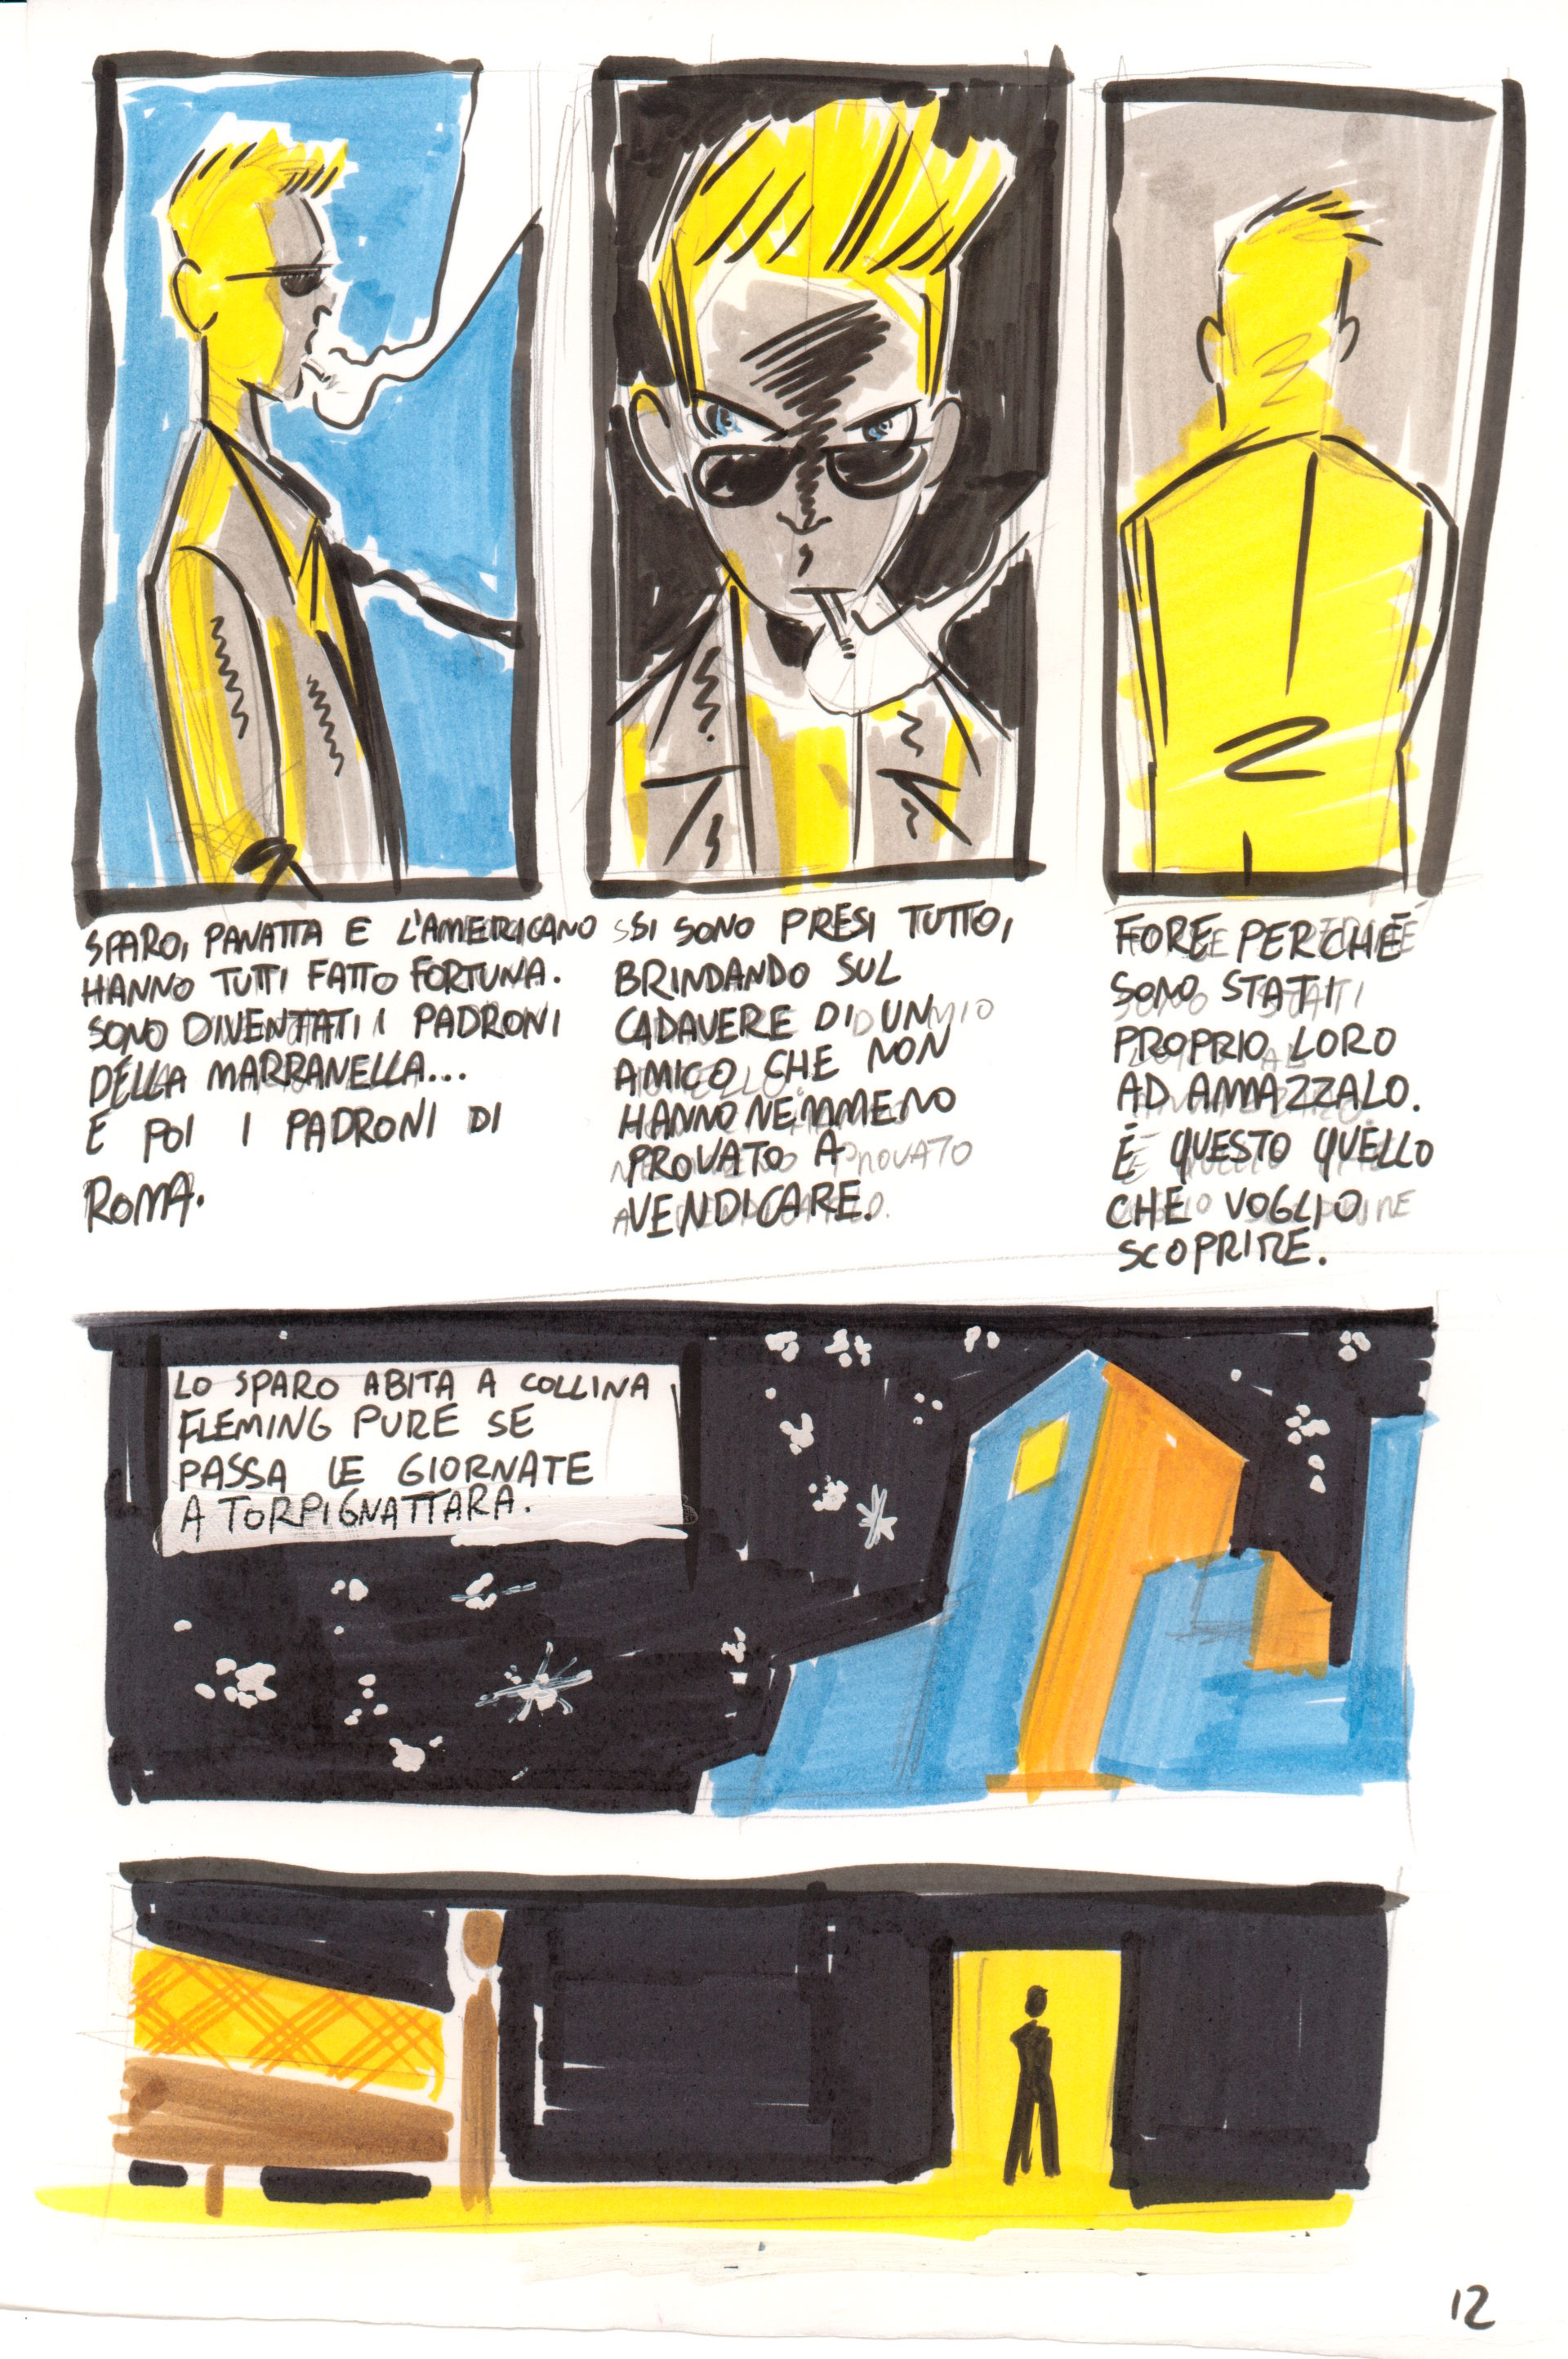 SPARO, PANATTA E L'AMERICANO
HANNO TUTTI FATTO FORTUNA.
SONO DIVENTATI I PADRONI
DELLA MARRANELLA...
E POI I PADRONI DI
ROMA.
SI SONO PRESI TUTTO,
BRINDANDO SUL
CADAVERE DI UN
AMICO CHE NON
HANNO NEMMENO
PROVATO A
VENDICARE.
FORE PERCHÉ
SONO STATI
PROPRIO LORO
AD AMAZZALO.
È QUESTO QUELLO
CHE VOGLIO
SCOPRIRE.
LO SPARO ABITA A COLLINA
FLEMING PURE SE
PASSA LE GIORNATE
A TORPIGNATTARA.
12